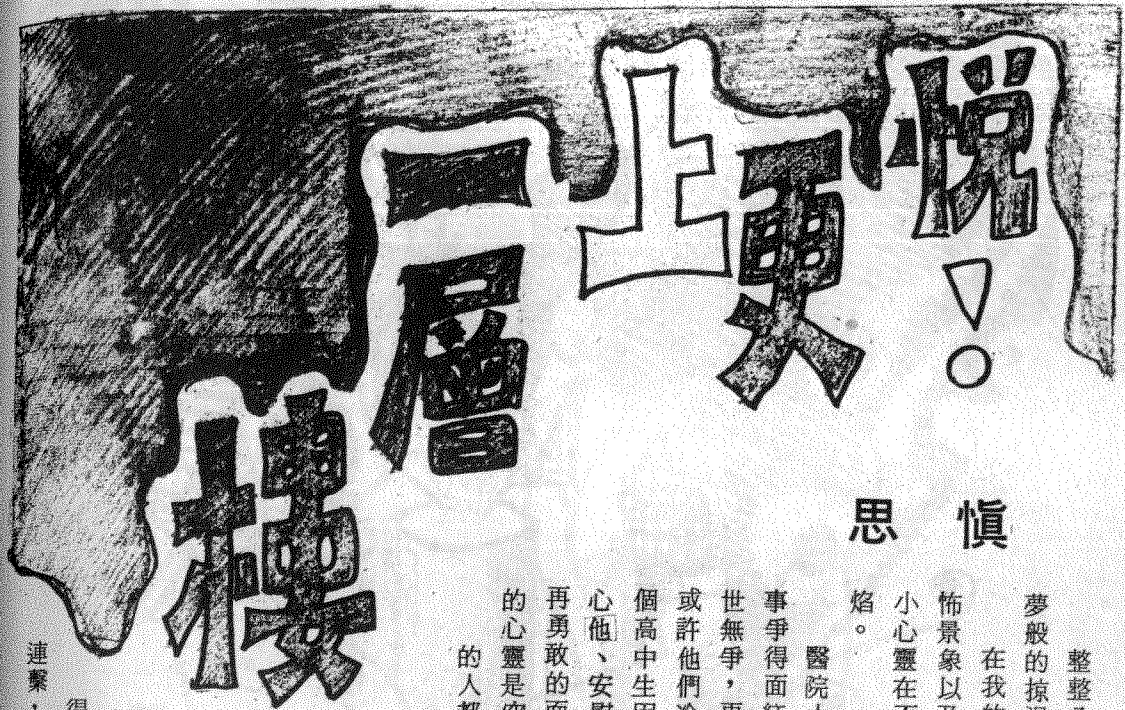 悦!
更上
一層
樓
愼思
整整
夢般的掠
在我的
怖景象以及
小心靈在不
焰。
醫院
事爭得面紅
世無爭，更
或許他們冷
個高中生因
心他、安慰
再勇敢的面
的心靈是空
的人都
得
連繫，